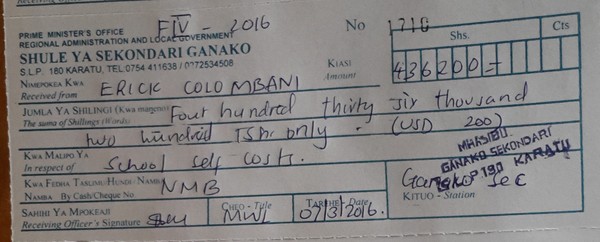 FIV - 2016
PRIME MINISTER'S OFFICE
REGIONAL ADMINISTRATION AND LOCAL GOVERNMENT
No 1710
SHULE YA SEKONDARI GANAKO
Shs. Cts
S.L.P. 180 KARATU, TEL:0754 411638 / 0272534508
NIMEPOKEA KWA KIASI 436200 =
Received from ERICK COLOMBANI Amount
JUMLA YA SHILINGI (Kwa maneno) Four hundred thirty six thousand
The sum of Shillings (Words) two hundred Tsh only. (USD 200)
KWA MALIPO YA
In respect of School self costs.
MHASIBU
GANAKO SEKONDARI
P 180 KARATU
KWA FEDHA TASLIMU/HUNDI NAMBA NMB Ganako Sec
NAMBA By Cash/Cheque No KITUO - Station
SAHIHI YA MPOKEAJI CHEO - Title TAREHE Date
Receiving Officer's Signature MWL 07/3/2016.